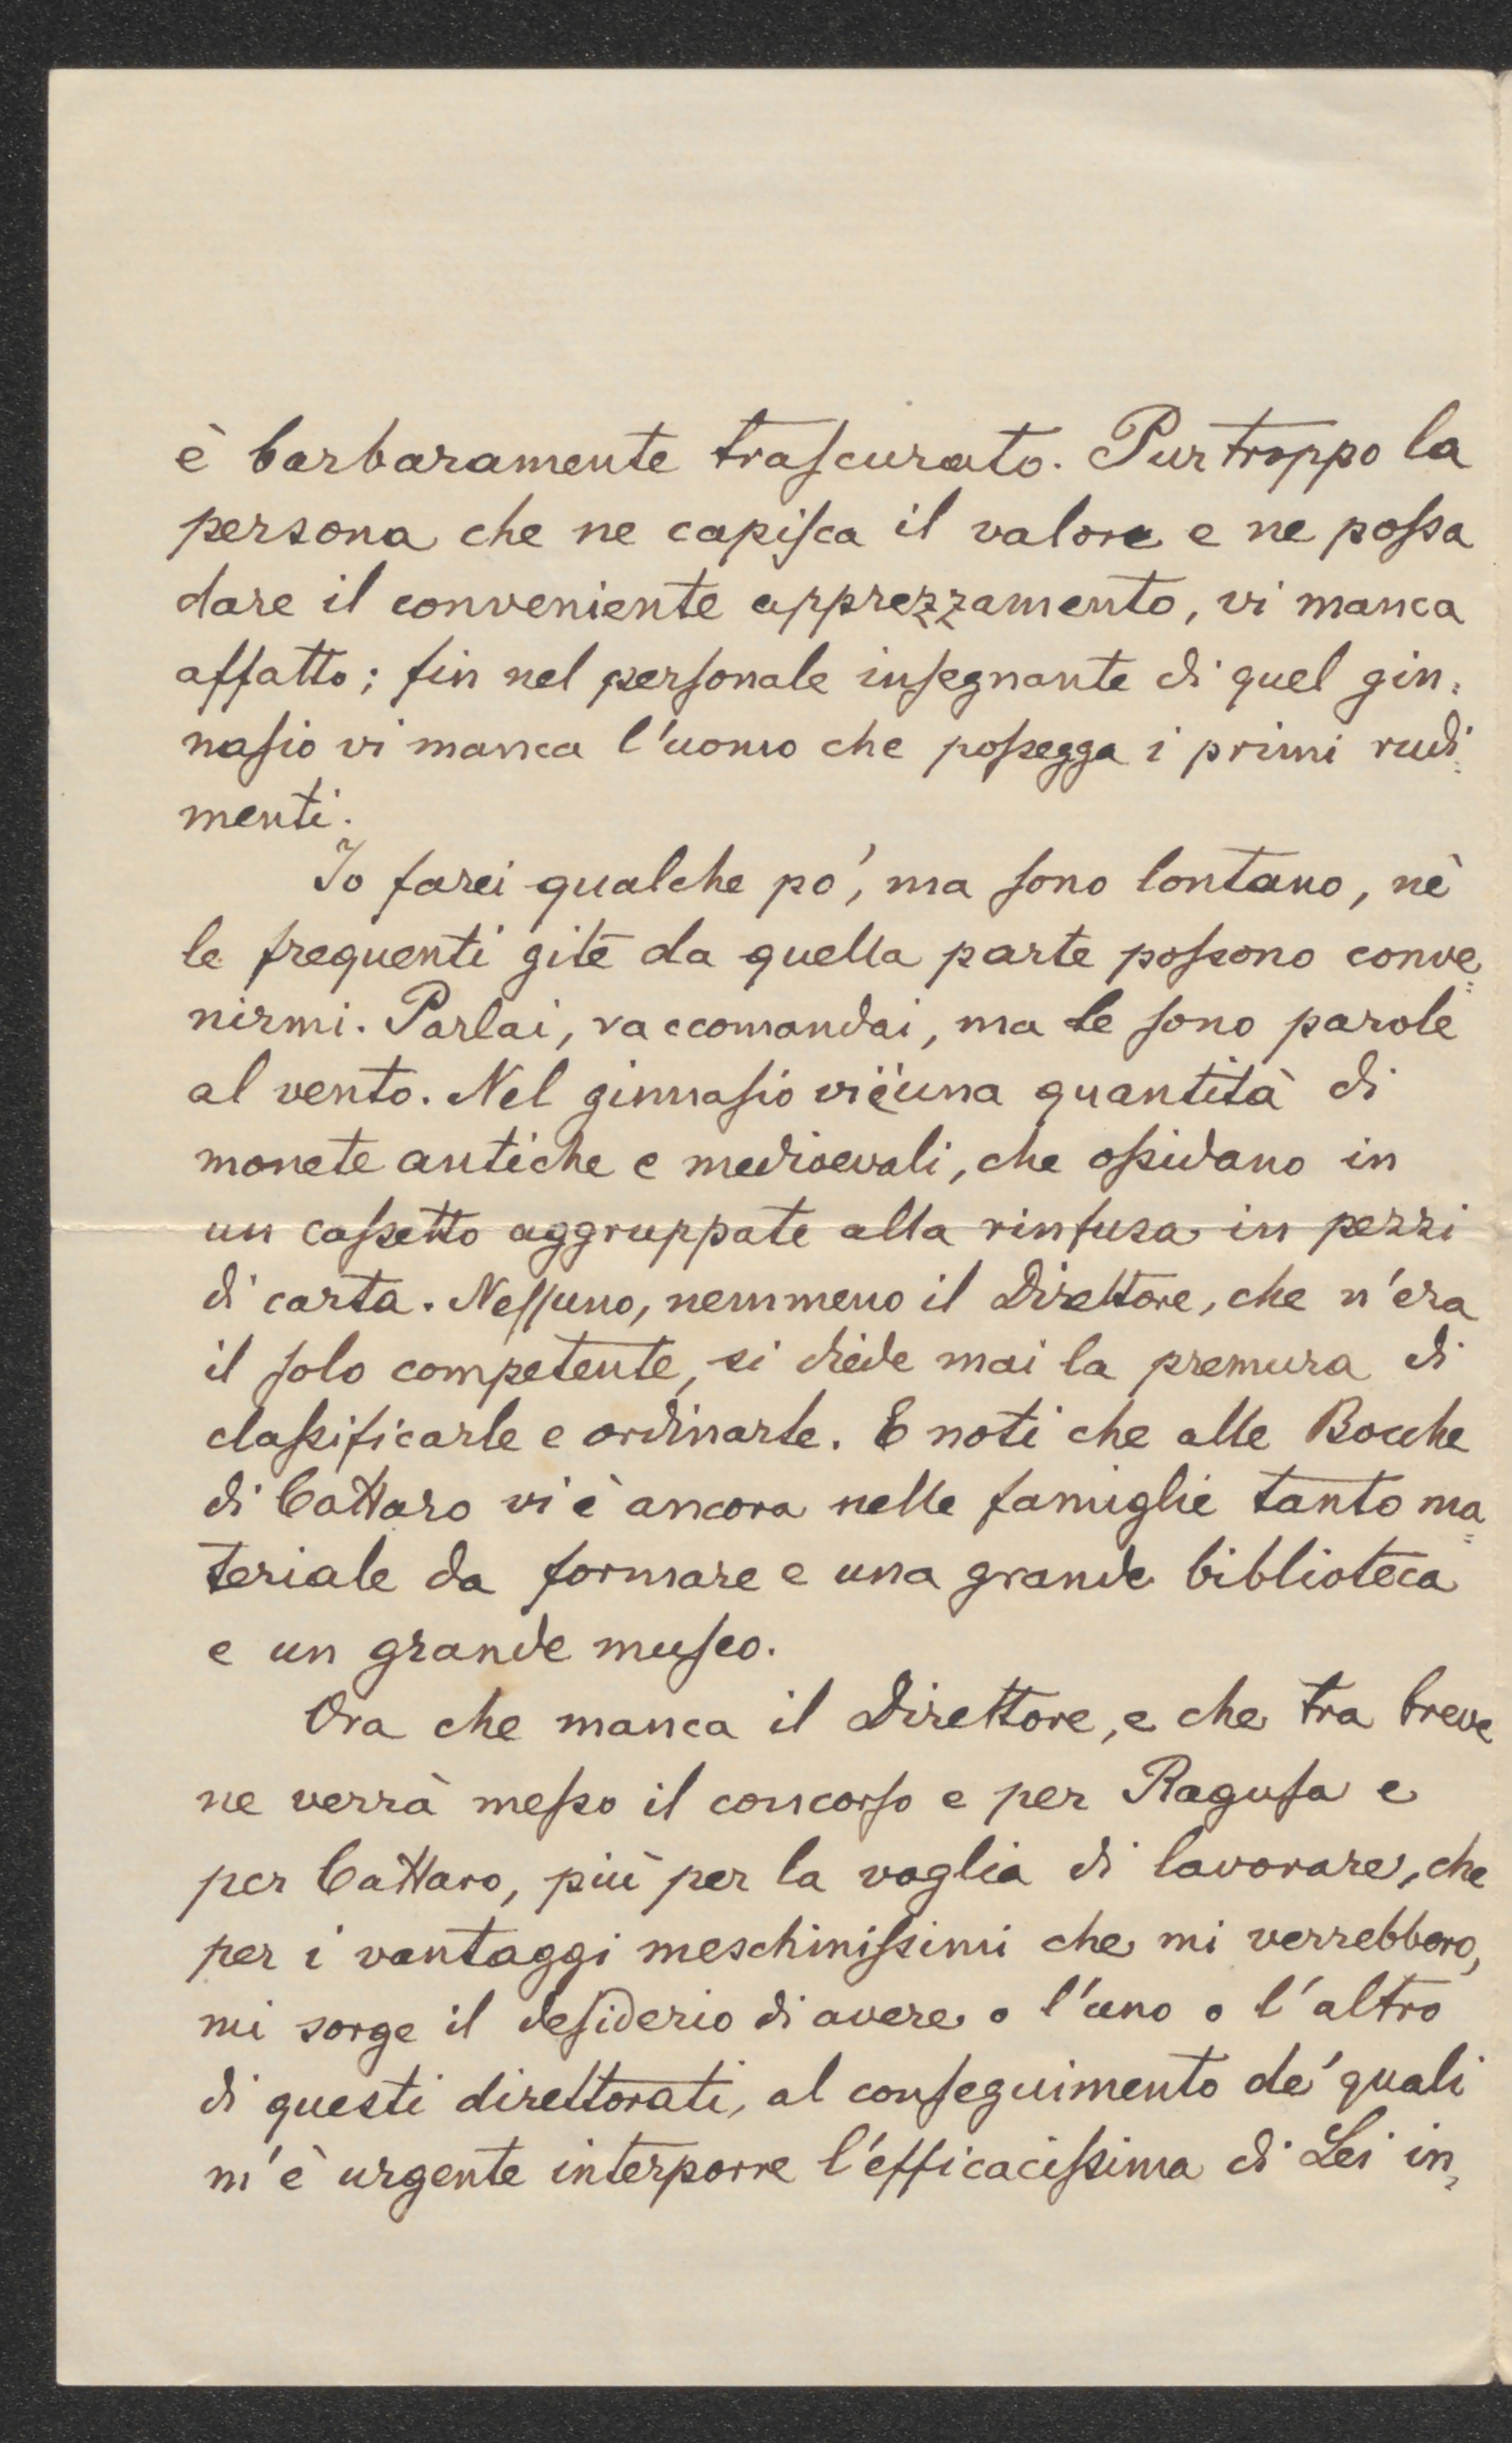 è barbaramente trascurato. Pur troppo la
persona che ne capisca il valore e ne possa
dare il conveniente apprezzamento, vi manca
affatto; fin nel personale insegnante di quel gin=
nasio vi manca l'uomo che possegga i primi rudi=
menti.
Io farei qualche po', ma sono lontano, nè
le frequenti gite da quella parte possono conve=
nirmi. Parlai, raccomandai, ma le sono parole
al vento. Nel ginnasio vi è una quantità di
monete antiche e medioevali, che ossidano in
un cassetto aggruppate alla rinfusa in pezzi
di carta. Nessuno, nemmeno il Direttore, che n'era
il solo competente, si diede mai la premura di
classificarle e ordinarle. E noti che alle Bocche
di Cattaro vi è ancora nelle famiglie tanto ma=
teriale da formare e una grande biblioteca
e un grande museo.
Ora che manca il Direttore, e che tra breve
ne verrà messo il concorso e per Ragusa e
per Cattaro, più per la voglia di lavorare, che
per i vantaggi meschinissimi che mi verrebbero,
mi sorge il desiderio di avere o l'uno o l'altro
di questi direttorati, al conseguimento de' quali
m'è urgente interporre l'efficacissima di Lei in=